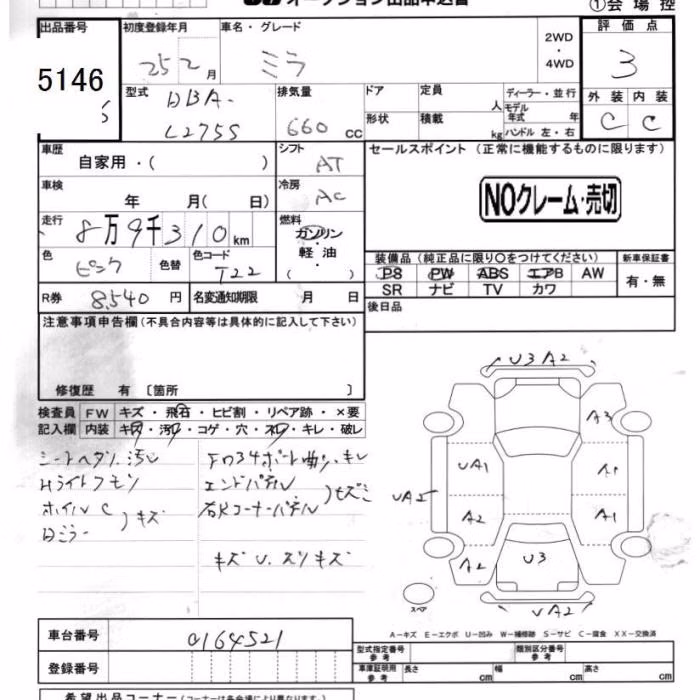 オークション出品申込書
①会場控
出品番号 初度登録年月 車名・グレード 評価点
5146 25 2月 ミラ 2WD・4WD 3
型式 DBA-L275S 排気量 660 cc ドア 定員 人 ディーラー・並行 外装 内装
形状 積載 kg モデル年式 年 ハンドル 左・右 C C
車歴 自家用・( ) シフト AT セールスポイント (正常に機能するものに限ります)
車検 年 月( 日) 冷房 AC NOクレーム・売切
走行 8万9千310km 燃料 ガソリン・軽油・( )
色 ピンク 色替 色コード T22 装備品(純正品に限り○をつけてください) 新車保証書
PS PW ABS エアB AW 有・無
SR ナビ TV カワ
R券 8,540円 名変通知期限 月 日 後日品
注意事項申告欄(不具合内容等は具体的に記入して下さい)
修復歴 有 〔箇所 〕
検査員 FW キズ・飛石・ヒビ割・リペア跡・×要
記入欄 内装 キズ・汚レ・コゲ・穴・スレ・キレ・破レ
シートヘタリ.汚レ
Hライトクモリ
ホイルC
Dミラー )キズ
エンドパネル
コーナーパネル
キズU.スリキズ
U3A2
A3
UA1
A1
UA2
A2
A1
A2
U3
A2
スペア
UA2
A-キズ E-エクボ U-凹み W-補修跡 S-サビ C-腐食 XX-交換済
車台番号 0164521 型式指定番号 参考 類別区分番号 参考
登録番号 車庫証明用 参考 長さ cm 幅 cm 高さ cm
希望出品コーナー